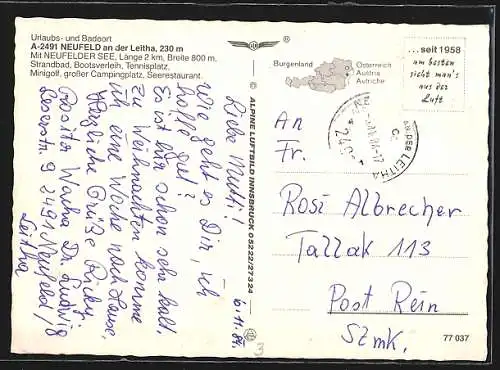 Urlaubs- und Badeort
A-2491 NEUFELD an der Leitha, 230 m
Mit NEUFELDER SEE, Länge 2 km, Breite 800 m.
Strandbad, Bootsverleih, Tennisplatz,
Minigolf, großer Campingplatz, Seerestaurant.
6.11.84.
Liebe Mutti!
Wie geht es Dir, ich
hoffe gut?
Es ist hier schon sehr kalt.
Zu Weihnachten komme
ich eine Woche nach Hause.
Herzliche Grüße Ricky
Rosita Wacha Dr. Ludwig
9 2491 Neufeld/
Leitha
© ALPINE LUFTBILD INNSBRUCK 05222/27324
Burgenland
Österreich
Austria
Autriche
...seit 1958
am besten
sieht man's
aus der
Luft
AN DER LEITHA
An
Fr.
Rosi Albrecher
Tallak 113
Post Rein
Stmk.
77 037